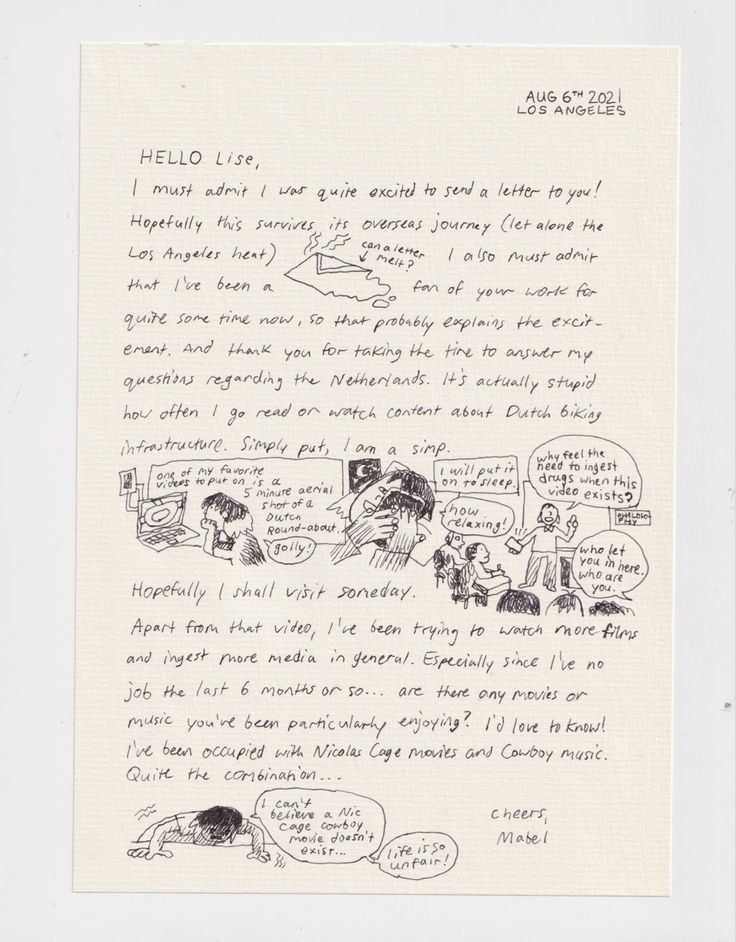 AUG 6TH 2021
LOS ANGELES
HELLO Lise,
I must admit I was quite excited to send a letter to you!
Hopefully this survives its overseas journey (let alone the
Los Angeles heat)
can a letter
melt?
I also must admit
that I've been a
fan of your work for
quite some time now, so that probably explains the excit-
ement. And thank you for taking the time to answer my
questions regarding the Netherlands. It's actually stupid
how often I go read or watch content about Dutch biking
infrastructure. Simply put, I am a simp.
one of my favorite
videos to put on is a
5 minute aerial
shot of a
Dutch
Round-about.
golly!
I will put it
on to sleep.
how
relaxing!
why feel the
need to ingest
drugs when this
video exists?
PHILOSO-
PHY
who let
you in here.
who are
you.
Hopefully I shall visit someday.
Apart from that video, I've been trying to watch more films
and ingest more media in general. Especially since I've no
job the last 6 months or so... are there any movies or
music you've been particularly enjoying? I'd love to know!
I've been occupied with Nicolas Cage movies and Cowboy music.
Quite the combination...
I can't
believe a Nic
Cage cowboy
movie doesn't
exist...
life is so
unfair!
cheers,
Mabel